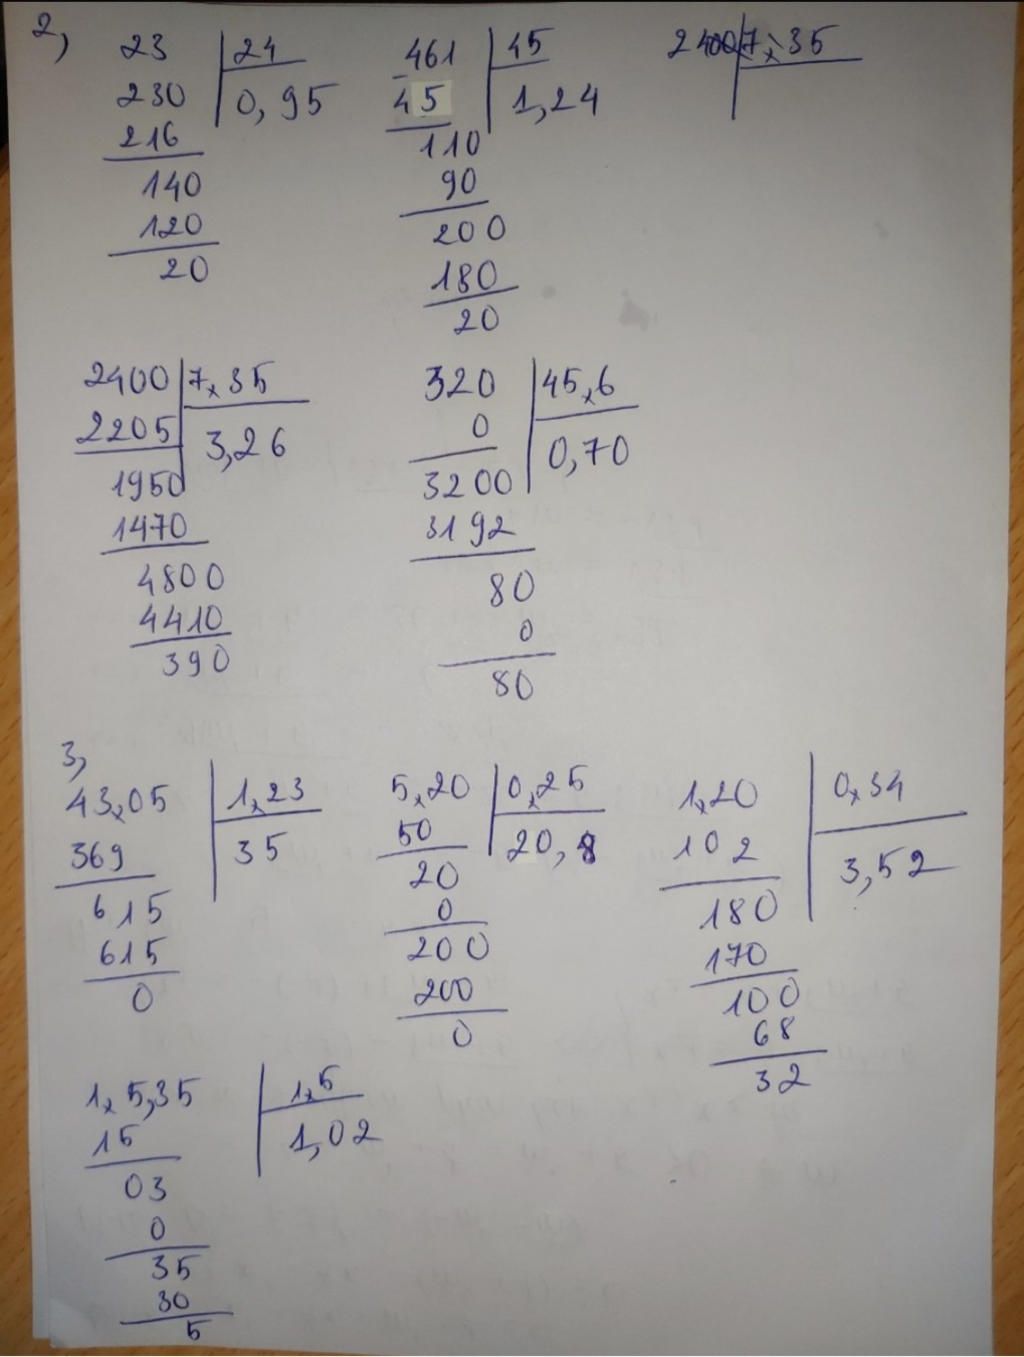 2,
23 | 24
230 | 0,95
216
140
120
20
461 | 45
45 | 1,24
110
90
200
180
20
2400 | 7,35
2400 | 7,35
2205 | 3,26
1950
1470
4800
4410
390
320 | 45,6
0 | 0,70
3200
3192
80
0
80
3,
43,05 | 1,23
369 | 35
615
615
0
5,20 | 0,25
50 | 20,8
20
0
200
200
0
1,20 | 0,34
102 | 3,52
180
170
100
68
32
1,5,35 | 1,5
15 | 1,02
03
0
35
30
5